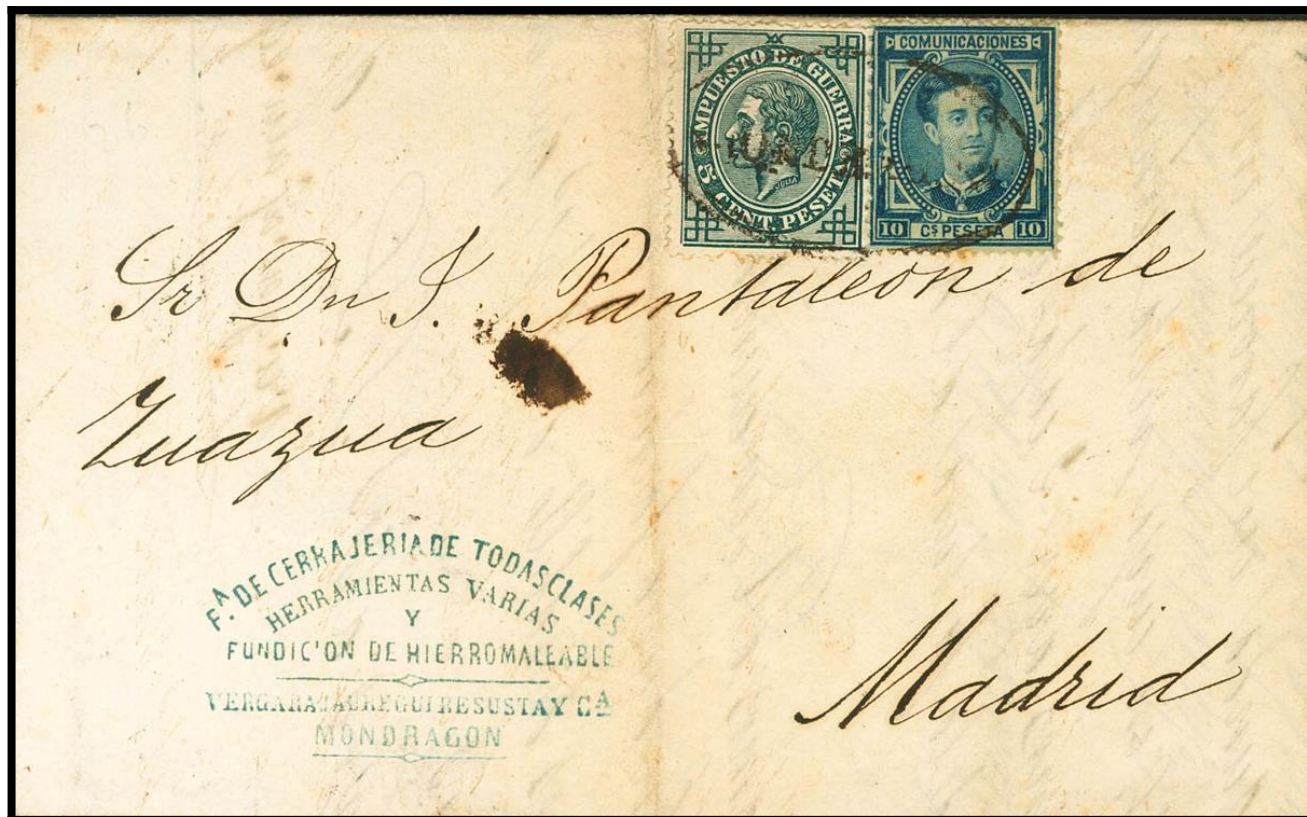 IMPUESTO DE GUERRA
5 CENT. PESETA
COMUNICACIONES
10 Cs PESETA 10
Sr Dn J. Pantaleon de
Zuazua
F.A DE CERRAJERIA DE TODAS CLASES
HERRAMIENTAS VARIAS
Y
FUNDICION DE HIERRO MALEABLE
VERGARAJAUREGUI RESUSTA Y CA
MONDRAGON
Madrid